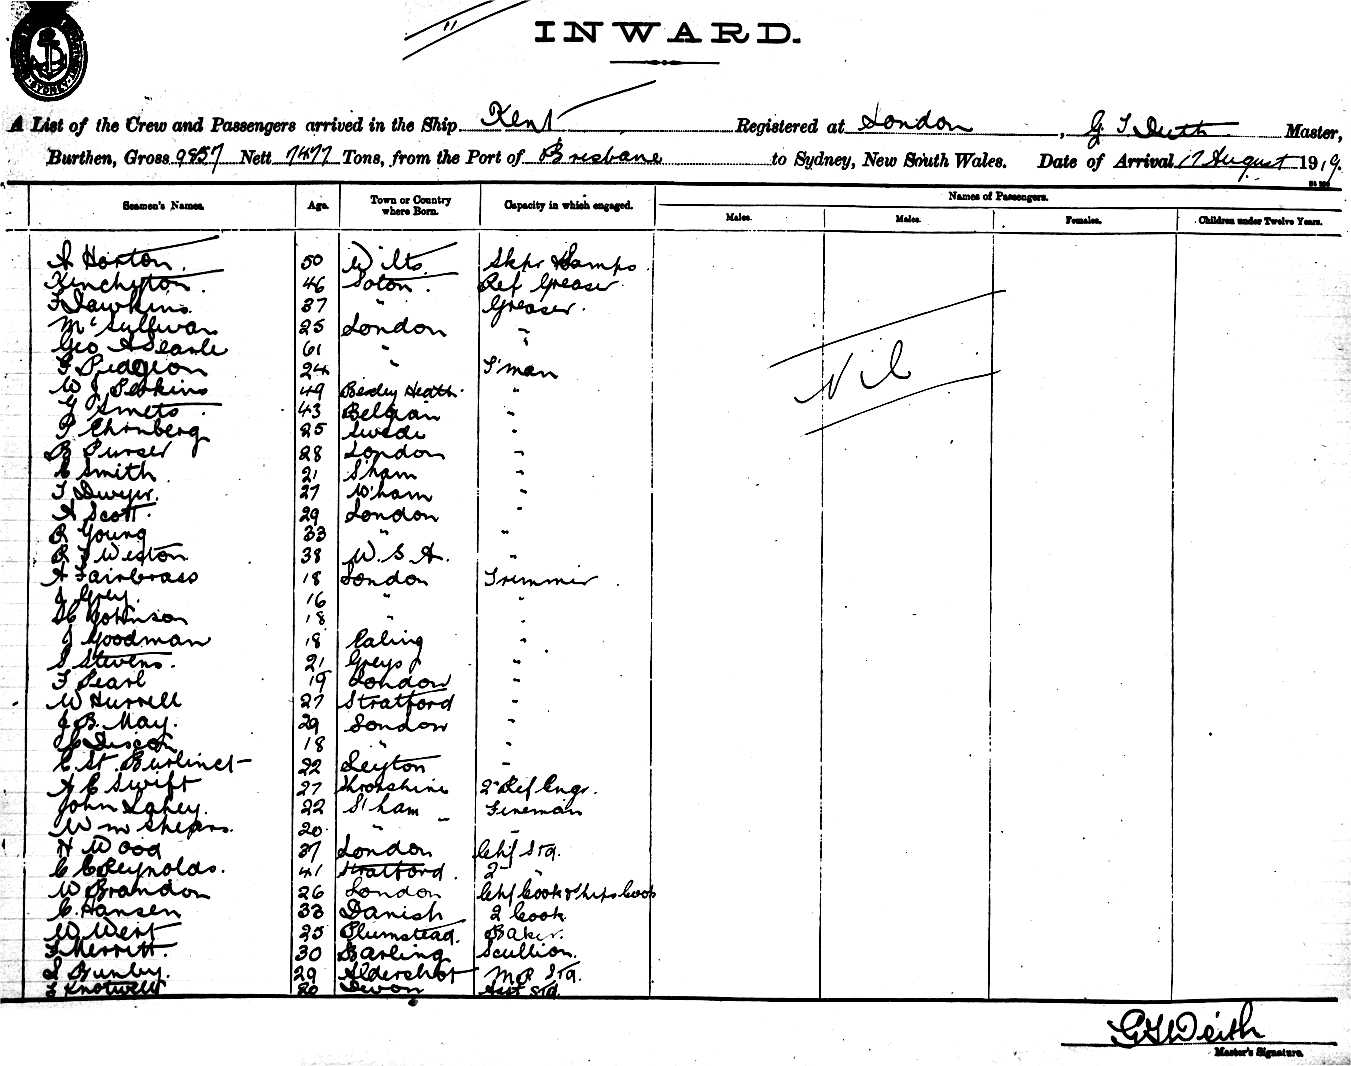 INWARD.
A List of the Crew and Passengers arrived in the Ship Kent Registered at London, G T Deith Master,
Burthen, Gross 9857 Nett 7477 Tons, from the Port of Brisbane to Sydney, New South Wales. Date of Arrival 17 August 1919.
Seamen's Names. Age. Town or Country where Born. Capacity in which engaged. Names of Passengers.
Males. Males. Females. Children under Twelve Years.
A Horton. 50 Wilts Skpr Lamps.
Kinchyton. 46 Soton. Ref Greaser
F Dawkins. 37 " Greaser.
Mc Sullivan 25 London "
Geo A Searle 61 " "
F Pidgeon 24 " F'man
W J Perkins 49 Bexley Heath. "
G Smets. 43 Belgian "
P Ehrnberg 25 Swede "
B Purser 28 London "
C Smith 21 S'ham "
T Dwyer. 27 W'ham "
A Scott. 29 London "
R Young 33 " "
R F Weston 38 U.S.A. "
A Fairbrass 18 London Trimmer
J Grey. 16 " "
Johnson 18 " "
J Goodman 18 Ealing "
S Stevens. 21 Greys "
F Pearl 19 London "
W Hurrell 27 Stratford "
J B. May. 29 London "
18 " "
C St. Burlinct 22 Leyton "
A E Swift 27 2nd Ref Engr.
John Lahey. 22 S'ham Fireman
Wm 20 " "
H Wood 37 London Chf Std.
C C Reynolds. 41 Stratford. 2nd "
W Brandon 26 London Chf Cook & Ships Cook
C. Hansen 33 Danish 2 Cook
W West 25 Plumstead. Baker.
F Merritt. 30 Barling Scullion.
S Bunby. 29 Aldershot MR Std.
F Knotwell 20 Devon Asst Std.
Nil
G T Deith
Master's Signature.